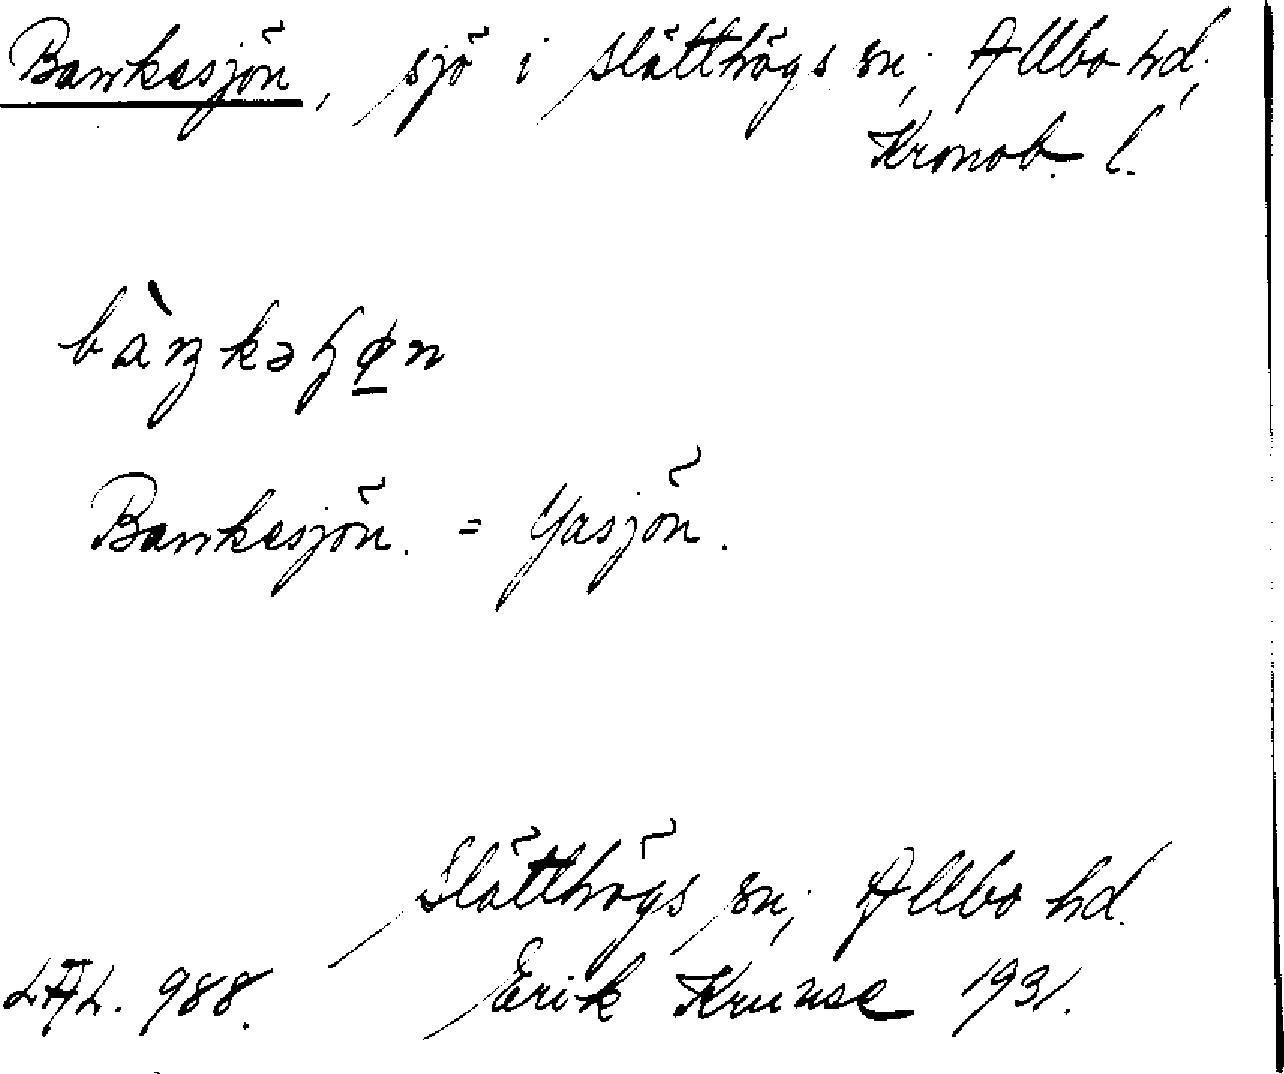 Bankesjön, sjö i Slätthögs sn; Allbo hd;
Kronob. l.
bàŋkəɧøn
Bankesjön. = Yasjön.
Slätthögs sn; Allbo hd.
LAL. 988. Erik Kruuse 1931.